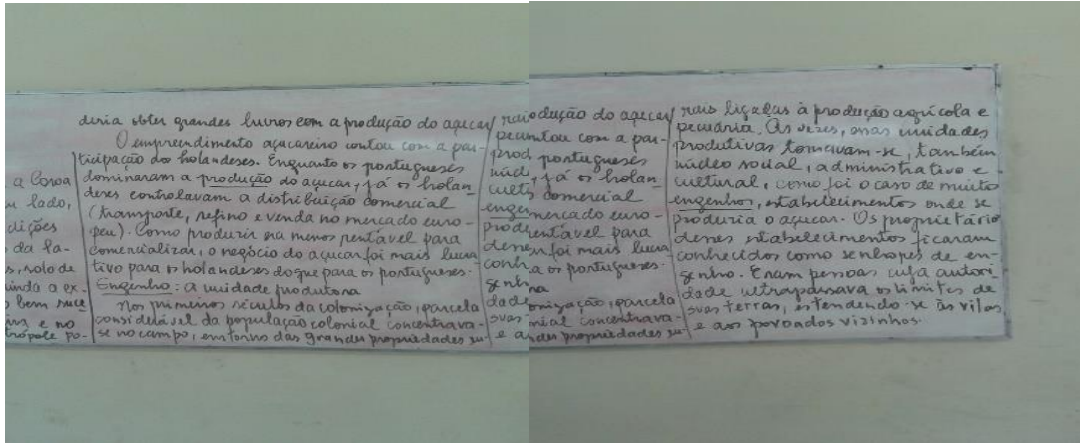 a Coroa
lado,
dições
da la-
s, solo de
inda a ex-
bem suce
e no
trópole po-
deria obter grandes lucros com a produção do açucar
O empreendimento açucareiro contou com a par-
ticipação dos holandeses. Enquanto os portugueses
dominaram a produção do açucar, já os holan-
deses controlavam a distribuição comercial
(transporte, refino e venda no mercado euro-
peu). Como produzir era menos rentável para
comercializar, o negócio do açucar foi mais lucra
tivo para os holandeses do que para os portugueses.
Engenho: a unidade produtora
Nos primeiros séculos da colonização, parcela
considerável da população colonial concentrava-
se no campo, em torno das grandes propriedades ru-
rai
pecu
prod
núcl
cult
engen
prod
desses
conh
genh
dade
suas
e a
odução do açucar
ntou com a par-
portugueses
já os holan-
comercial
mercado euro-
entável para
foi mais lucra
a os portugueses.
na
onização, parcela
nial concentrava-
des propriedades ru-
rais ligadas à produção agrícola e
pecuária. Às vezes, essas unidades
produtivas tornavam-se, também
núcleo social, administrativo e
cultural, como foi o caso de muitos
engenhos, estabelecimentos onde se
produzia o açucar. Os proprietário
desses estabelecimentos ficaram
conhecidos como senhores de en-
genho. Eram pessoas cuja autori
dade ultrapassava os limites de
suas terras, estendendo-se às vilas
e aos povoados vizinhos.